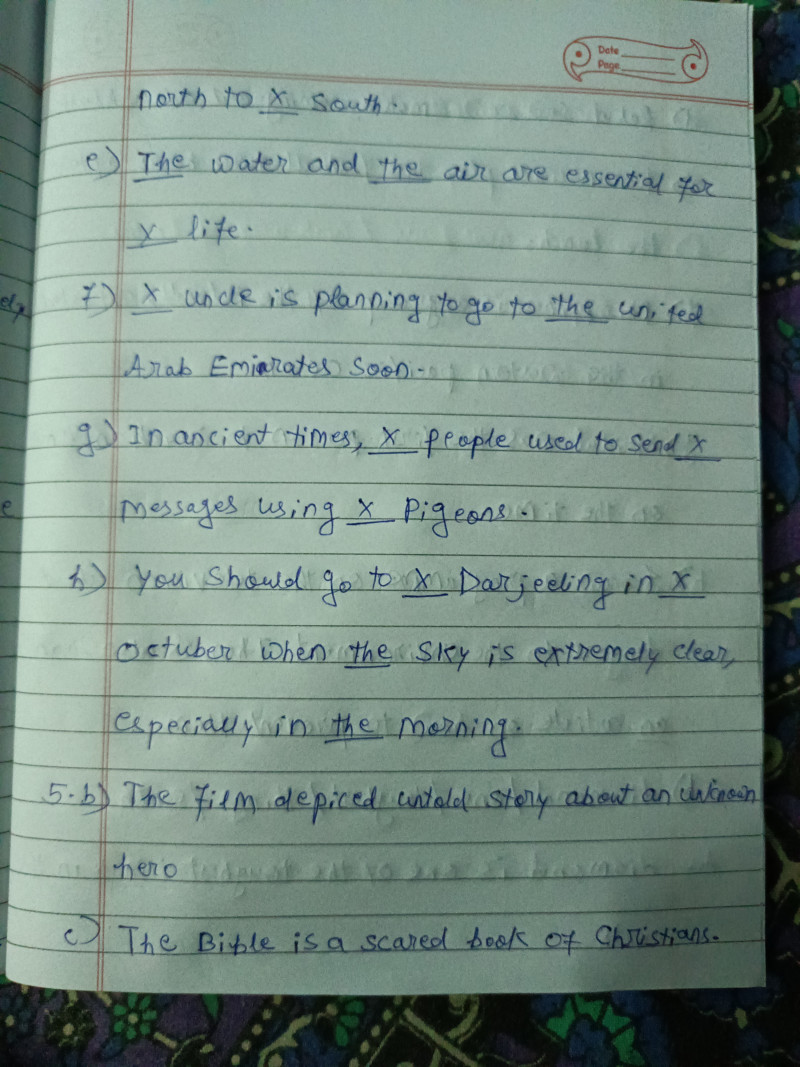 Date
Page
north to X south.
e) The water and the air are essential for
X life.
f) X uncle is planning to go to the united
Arab Emirates Soon.
g) In ancient times, X people used to send X
messages using X pigeons.
h) You Should go to X Darjeeling in X
octuber when the sky is extremely clear,
especially in the morning.
5.b) The film depiced untold story about an unknown
hero
c) The Bible is a scared book of Christians.